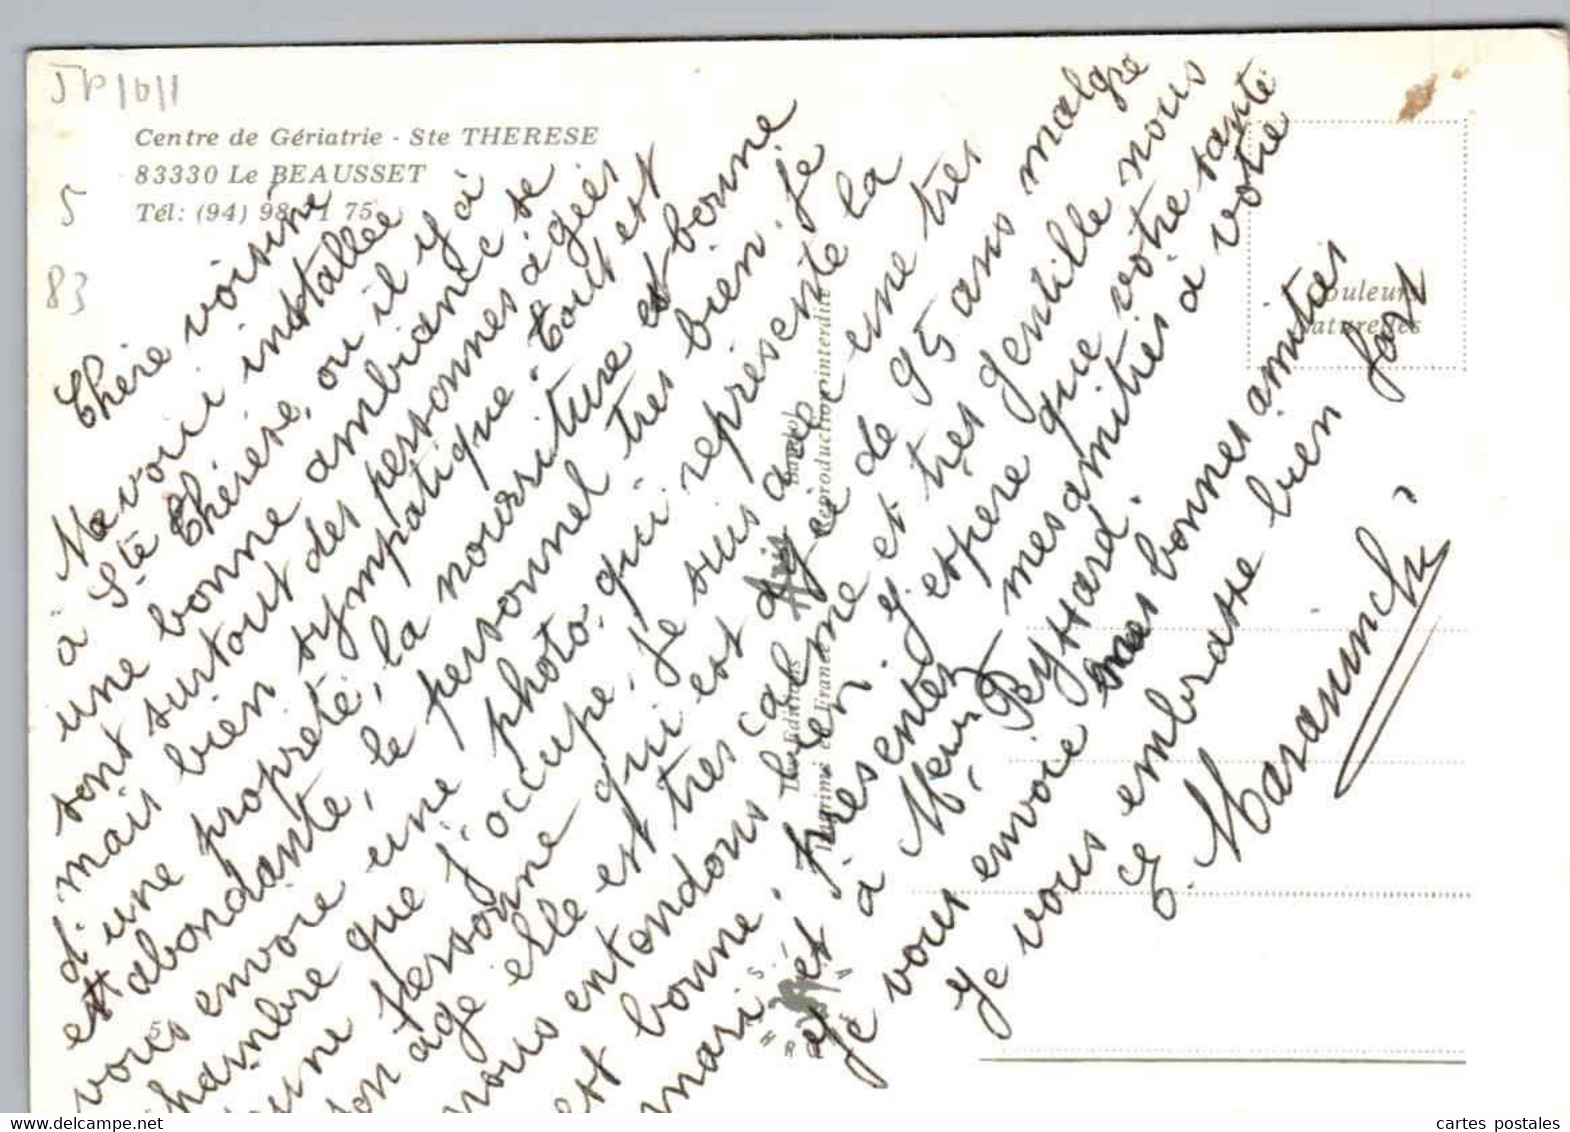 JP/6/1
5
83
Centre de Gériatrie - Ste THERESE
83330 Le BEAUSSET
Tél: (94) 98 1 75
Chère voisine
Me voici installée
à Ste Thérèse, ou il y a
une bonne ambiance se
sont surtout des personnes agées
mais bien sympatique. Tout est
d'une propreté, la nourriture est bonne
et abondante, le personnel tres bien. je
vous envoie une photo qui représente la
chambre que j'occupe, je suis avec une tres
bonne personne qui est agée de 95 ans malgre
son age elle est tres calme et très gentille nous
nous entendons bien. j'espere que votre santé
est bonne. présentez mes amitiés a votre
mari et à Meur Peyssard.
Je vous envoie mes bonnes amities
Je vous embrasse bien fort
Couleurs
Naturelles
Editions
Imprimé en France
Reproduction interdite